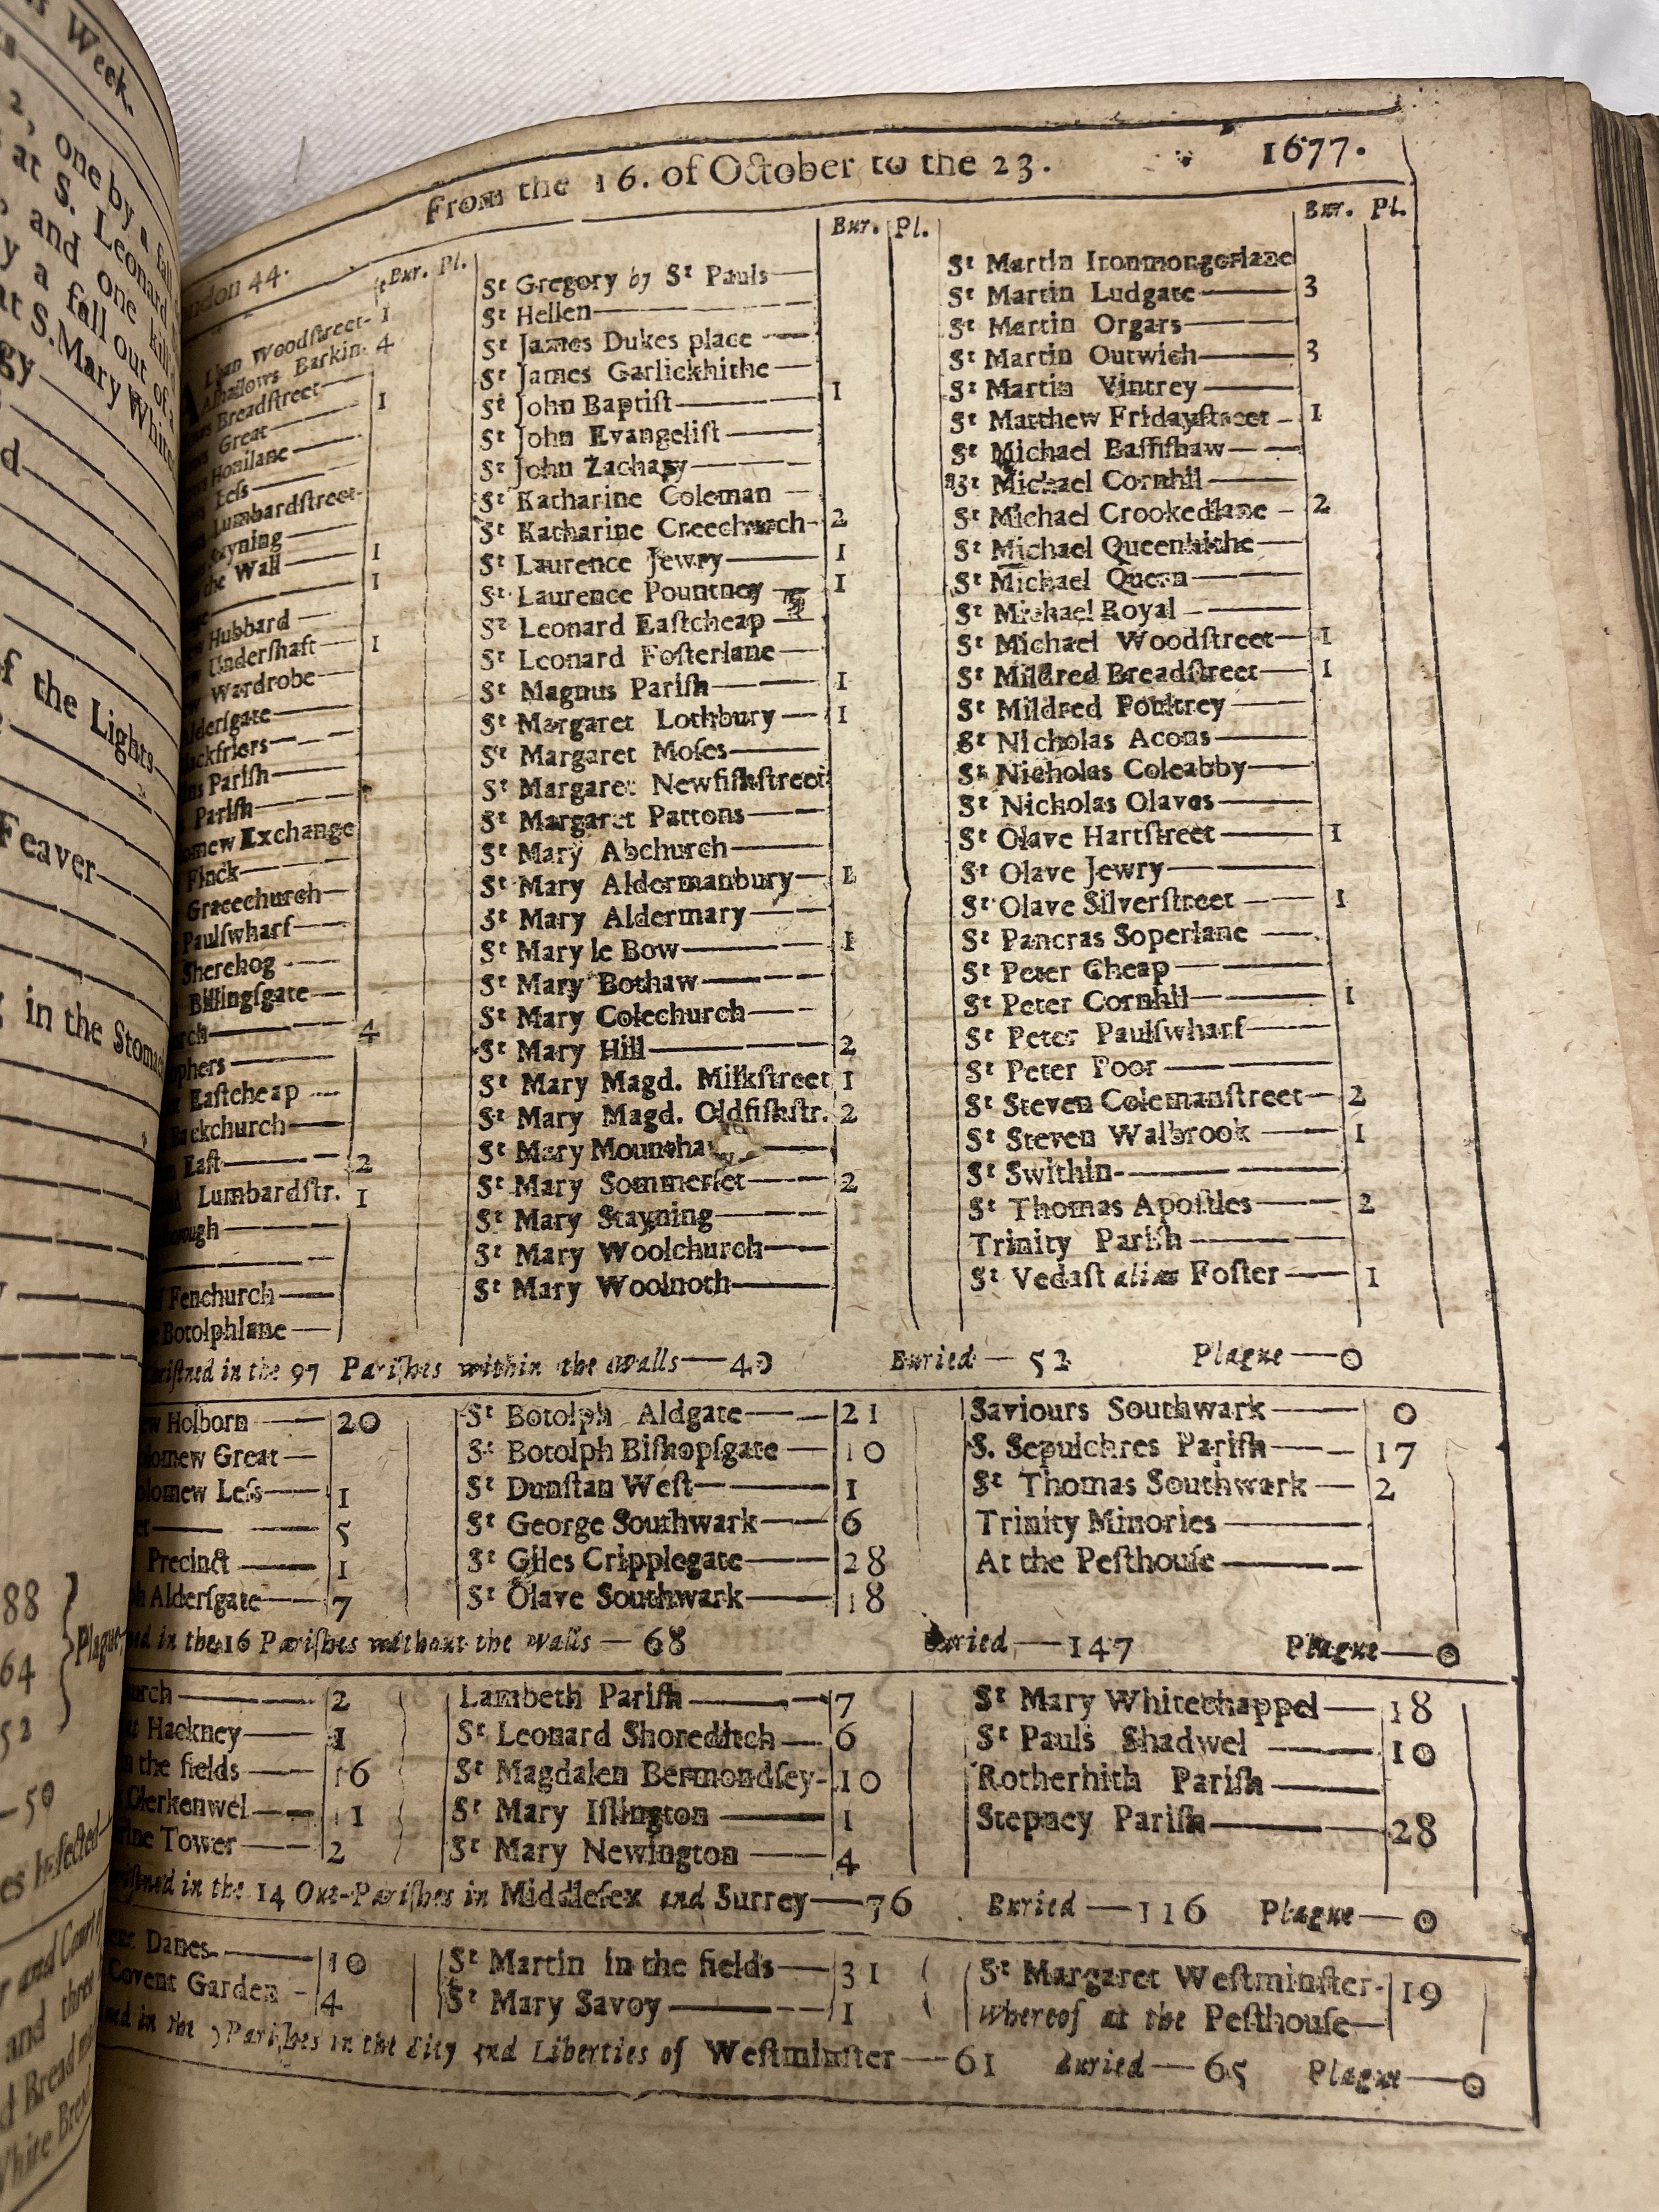 s Week.
2, one by a fall
at S. Leonard
and one kill'd
y a fall out of a
at S. Mary White
gy
d
f the Lights
Feaver
g in the Stomach
88
64 } Plague
52
50
es Infected
and Court of
and three
d Bread
White Bread
From the 16. of October to the 23. 1677.
ndon 44.
Bur. Pl.
Alban Woodſtreet- 1
Alhallows Barkin- 4
Breadſtreet—
Great— 1
Honilane—
Leſs—
Lumbardſtreet-
tayning—
the Wall— 1
1
Hubbard—
Underſhaft— 1
Wardrobe—
Alderſgate—
lackfriers—
ns Pariſh—
Pariſh—
omew Exchange
Finck—
Gracechurch—
Paulſwharf—
Sherehog—
Billingſgate—
urch— 4
ophers—
Eaſtcheap—
Backchurch—
Eaſt— 2
d Lumbardſtr. 1
orough—
Fenchurch—
e Botolphlane—
Bur. Pl.
St Gregory by St Pauls—
St Hellen—
St James Dukes place—
St James Garlickhithe—
St John Baptiſt— 1
St John Evangeliſt—
St John Zachary—
St Katharine Coleman—
St Katharine Creechurch- 2
St Laurence Jewry— 1
St Laurence Pountney— 1
St Leonard Eaſtcheap—
St Leonard Foſterlane—
St Magnus Pariſh— 1
St Margaret Lothbury— 1
St Margaret Moſes—
St Margaret Newfiſhſtreet
St Margaret Pattons—
St Mary Abchurch—
St Mary Aldermanbury— 1
St Mary Aldermary—
St Mary le Bow— 1
St Mary Bothaw—
St Mary Colechurch—
St Mary Hill— 2
St Mary Magd. Milkſtreet 1
St Mary Magd. Oldfiſhſtr. 2
St Mary Mounthaw—
St Mary Sommerſet— 2
St Mary Stayning—
St Mary Woolchurch—
St Mary Woolnoth—
Bur. Pl.
St Martin Ironmongerlane
St Martin Ludgate— 3
St Martin Orgars—
St Martin Outwich— 3
St Martin Vintrey—
St Matthew Fridayſtreet- 1
St Michael Baſſiſhaw—
St Michael Cornhil—
St Michael Crookedlane- 2
St Michael Queenhithe—
St Michael Quern—
St Michael Royal—
St Michael Woodſtreet— 1
St Mildred Breadſtreet— 1
St Mildred Poultrey—
St Nicholas Acons—
St Nicholas Coleabby—
St Nicholas Olaves—
St Olave Hartſtreet— 1
St Olave Jewry—
St Olave Silverſtreet— 1
St Pancras Soperlane—
St Peter Cheap—
St Peter Cornhil— 1
St Peter Paulſwharf—
St Peter Poor—
St Steven Colemanſtreet— 2
St Steven Walbrook— 1
St Swithin—
St Thomas Apoſtles— 2
Trinity Pariſh—
St Vedaſt alias Foſter— 1
riſtned in the 97 Pariſhes within the Walls—40 Buried—52 Plague—0
ew Holborn— 20
olomew Great—
olomew Leſs— 1
et— 5
Precinct— 1
h Alderſgate— 7
St Botolph Aldgate— 21
St Botolph Biſhopſgate— 10
St Dunſtan Weſt— 1
St George Southwark— 6
St Giles Cripplegate— 28
St Olave Southwark— 18
Saviours Southwark— 0
S. Sepulchres Pariſh— 17
St Thomas Southwark— 2
Trinity Minories—
At the Peſthouſe—
ned in the 16 Pariſhes without the Walls—68 Buried—147 Plague—0
urch— 2
at Hackney— 1
n the fields— 16
Clerkenwel— 11
rine Tower— 2
Lambeth Pariſh— 7
St Leonard Shoreditch— 6
St Magdalen Bermondſey- 10
St Mary Iſlington— 1
St Mary Newington— 4
St Mary Whitechappel— 18
St Pauls Shadwel— 10
Rotherhith Pariſh—
Stepney Pariſh— 28
riſtned in the 14 Out-Pariſhes in Middleſex and Surrey—76 Buried—116 Plague—0
ent Danes— 10
Covent Garden- 4
St Martin in the fields— 31
St Mary Savoy— 1
St Margaret Weſtminſter- 19
Whereof at the Peſthouſe—
ned in the 7 Pariſhes in the City and Liberties of Weſtminſter—61 Buried—65 Plague—0